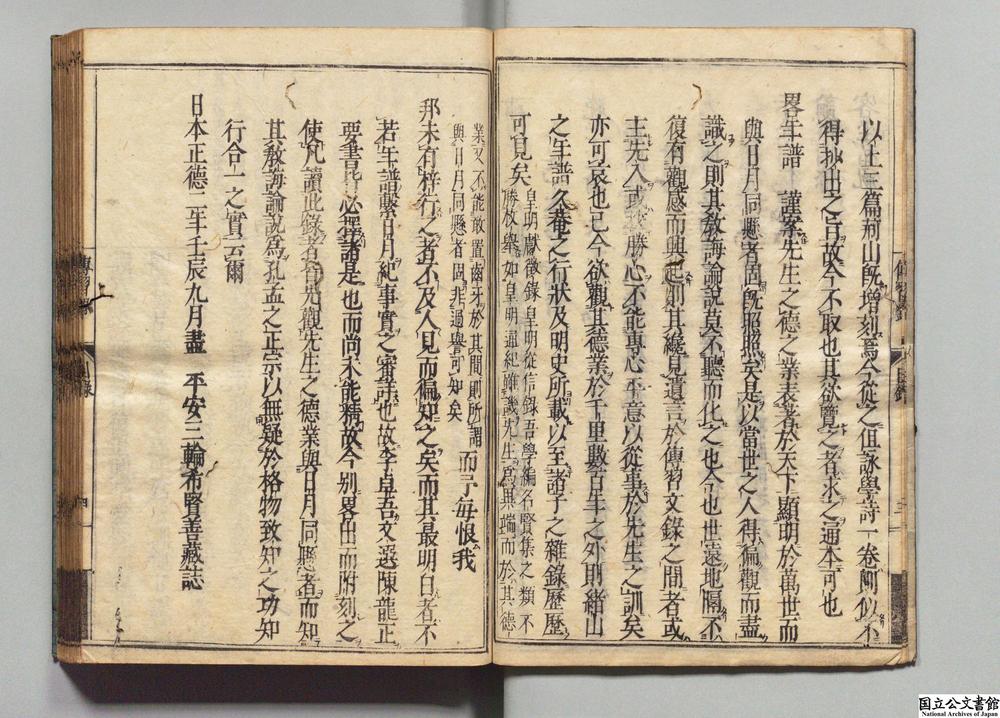 以上三篇荊山既增刻焉今從之但詠學詩一卷阿似不
得抄出之旨故今不取也其欲覽之者求之通本可也
畧年譜　謹案先生之德之業表著於天下顯明於萬世而
與日月同懸者固既照照矣是以當世之人得徧觀而盡
識之則其敎誨論說莫不聽而化之也今也世遠地隔不
復有觀感而興起則其纔見遺言於傳習文錄之間者或
主先入或挾勝心不能專心平意以從事於先生之訓矣
亦可哀也已今欲觀其德業於千里數百年之外則緒山
之年譜久菴之行狀及明史所載以至諸子之雜錄歷歷
可見矣
皇明獻徵錄皇明從信錄吾學編名賢集之類不
勝枚擧如皇明通紀雖譏先生爲異端而於其德
業又不能敢置齒牙於其間則所謂
與日月同懸者固非過譽可知矣
而予每恨我
邦未有梓行之者不及人見而徧知之矣而其最明白者不
若年譜繫日月紀事實之審詳也故李卓吾文選陳龍正
要書皆必擇諸是也而尚未能精故今別畧出而附刻之
使凡讀此錄者咨先觀先生之德業與日月同懸者而知
其敎誨論說爲孔孟之正宗以無疑於格物致知之功知
行合一之實云爾
日本正德二年壬辰九月盡　平安三輪希賢善藏誌
國立公文書館
National Archives of Japan